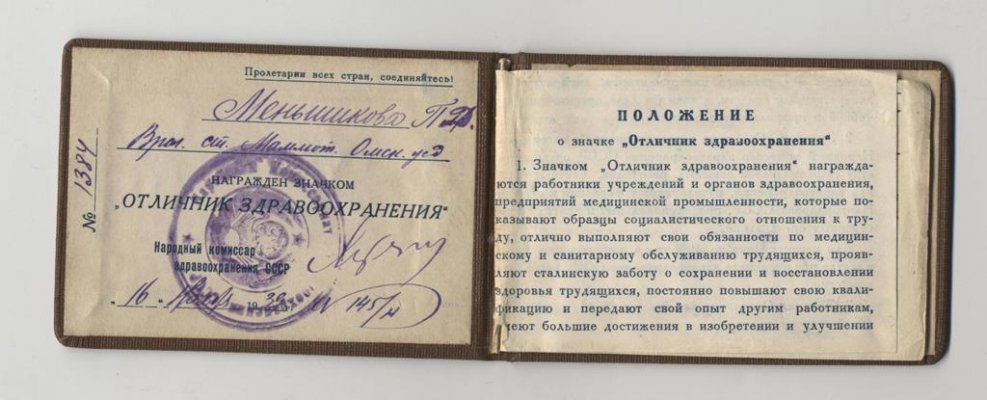 Пролетарии всех стран, соединяйтесь!
Меньшикова П.
Врач. ст. Омск.
№ 1384
НАГРАЖДЕН ЗНАЧКОМ
„ОТЛИЧНИК ЗДРАВООХРАНЕНИЯ“
Народный комиссар
здравоохранения СССР
„16 1939 145/н
ПОЛОЖЕНИЕ
о значке „Отличник здравоохранения“
1. Значком „Отличник здравоохранения“ награжда-
ются работники учреждений и органов здравоохранения,
предприятий медицинской промышленности, которые по-
казывают образцы социалистического отношения к тру-
ду, отлично выполняют свои обязанности по медицин-
скому и санитарному обслуживанию трудящихся, прояв-
ляют сталинскую заботу о сохранении и восстановлении
здоровья трудящихся, постоянно повышают свою квали-
фикацию и передают свой опыт другим работникам,
имеют большие достижения в изобретении и улучшении